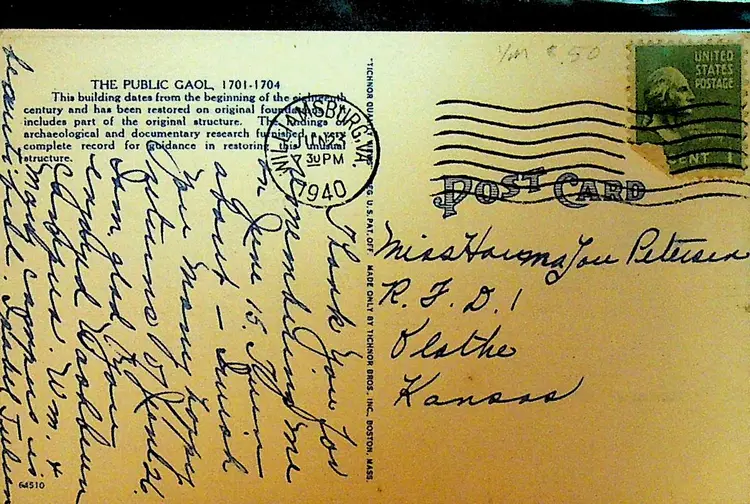 THE PUBLIC GAOL, 1701-1704
This building dates from the beginning of the eighteenth
century and has been restored on original foundations
includes part of the original structure. The findings of
archaeological and documentary research furnished a very
complete record for guidance in restoring this unusual
structure.
Thank you for
remembering me
on June 15. Then
about - I wish
You many happy
returns of
I am glad you
enjoyed
campus. Wm. &
Mary campus is
beautiful. Isabel
64510
"TICHNOR QUALITY VIEWS," REG. U. S. PAT. OFF. MADE ONLY BY TICHNOR BROS., INC., BOSTON, MASS.
WILLIAMSBURG, VA.
7 30 PM
1940
.50
UNITED
STATES
POSTAGE
CENT 1
POST CARD
Miss Lou Petersen
R. F. D. 1
Olathe
Kansas